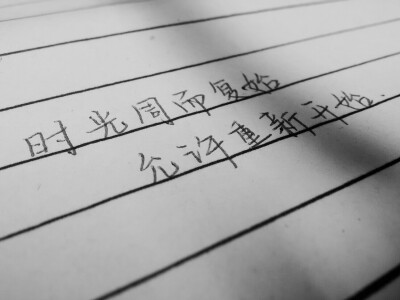 时光周而复始
允许重新开始.